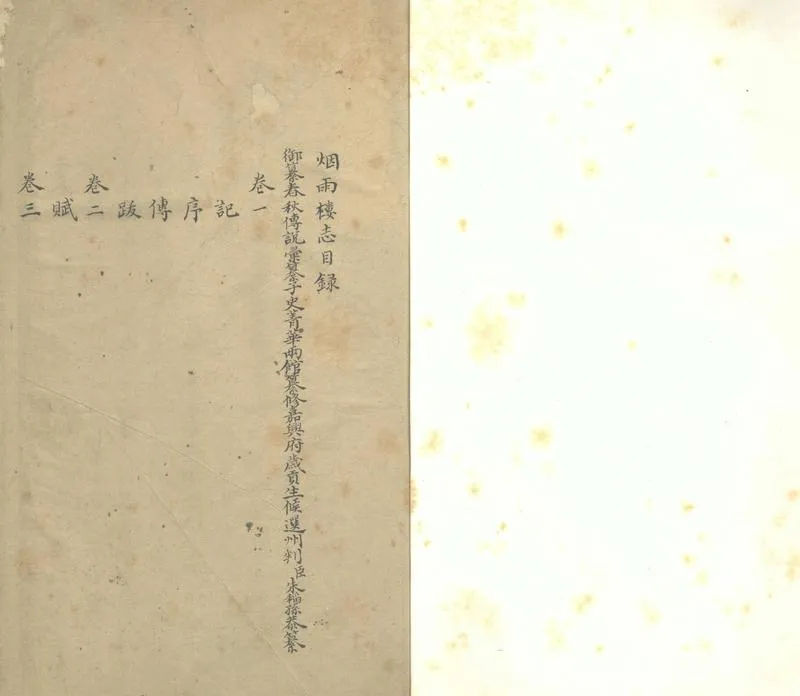 烟雨樓志目録
御纂春秋傳說彙纂子史菁華兩館纂修嘉興府歲貢生候選州判臣朱稻孫恭纂
卷一
記
序
傳
跋
卷二
賦
卷三